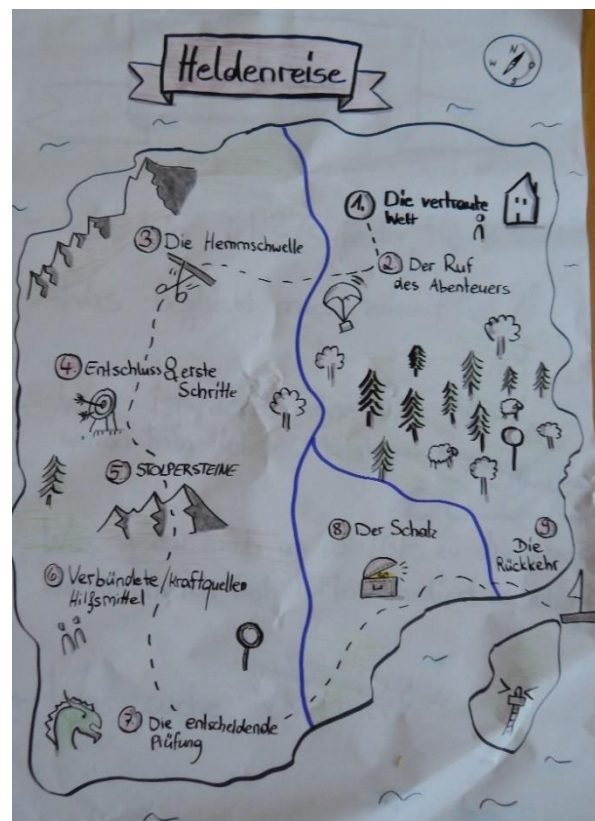 Heldenreise
N
W O
S
1. Die vertraute
Welt
2 Der Ruf
des Abenteuers
3 Die Hemmschwelle
4. Entschluss & erste
Schritte
5 STOLPERSTEINE
6 Verbündete/Kraftquellen
Hilfsmittel
7 Die entscheidende
Prüfung
8 Der Schatz
9
Die
Rückkehr